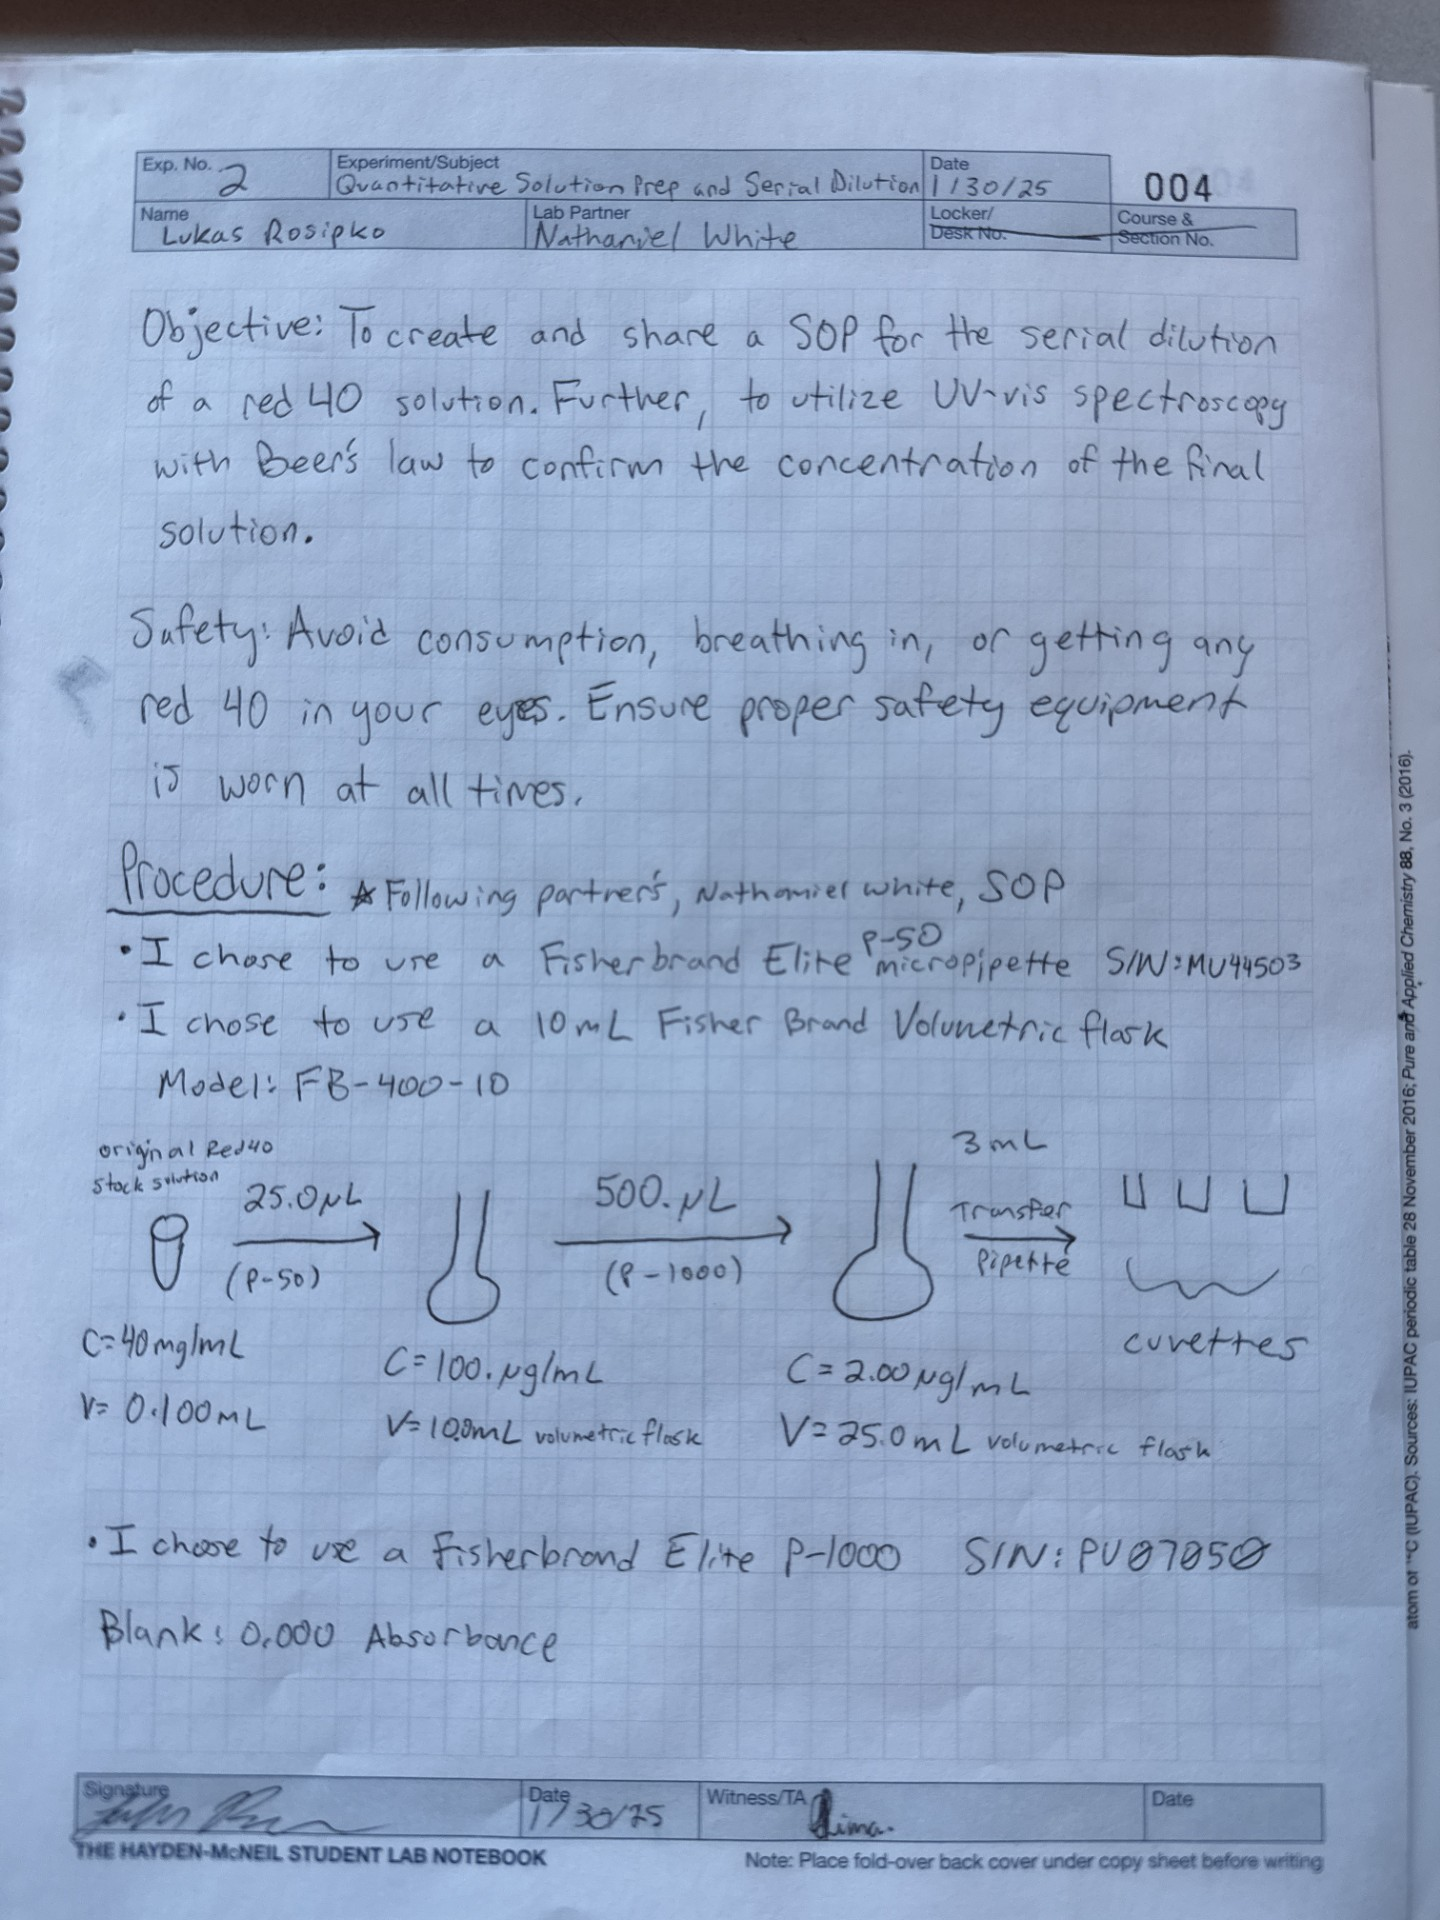 Exp. No. 2
Experiment/Subject
Quantitative Solution Prep and Serial Dilution
Date
1/30/25
004
Name
Lukas Rosipko
Lab Partner
Nathaniel White
Locker/
Desk No.
Course &
Section No.
Objective: To create and share a SOP for the serial dilution
of a red 40 solution. Further, to utilize UV-vis spectroscopy
with Beer's law to confirm the concentration of the final
solution.
Safety: Avoid consumption, breathing in, or getting any
red 40 in your eyes. Ensure proper safety equipment
is worn at all times.
Procedure: ☆ Following partner's, Nathaniel White, SOP
• I chose to use a Fisherbrand Elite P-50 micropipette S/N: MU44503
• I chose to use a 10mL Fisher Brand Volumetric flask
Model: FB-400-10
original Red40
stock solution
25.0µL
(P-50)
500.µL
(P-1000)
3mL
Transfer
Pipette
cuvettes
C=40mg/mL
V= 0.100mL
C=100.µg/mL
V=10.0mL volumetric flask
C=2.00µg/mL
V=25.0mL volumetric flask
• I choose to use a Fisherbrand Elite P-1000 S/N: PU07050
Blank: 0.000 Absorbance
Signature
Date
1/30/25
Witness/TA
Date
THE HAYDEN-McNEIL STUDENT LAB NOTEBOOK
Note: Place fold-over back cover under copy sheet before writing
(IUPAC). Sources: IUPAC periodic table 28 November 2016; Pure and Applied Chemistry 88, No. 3 (2016).